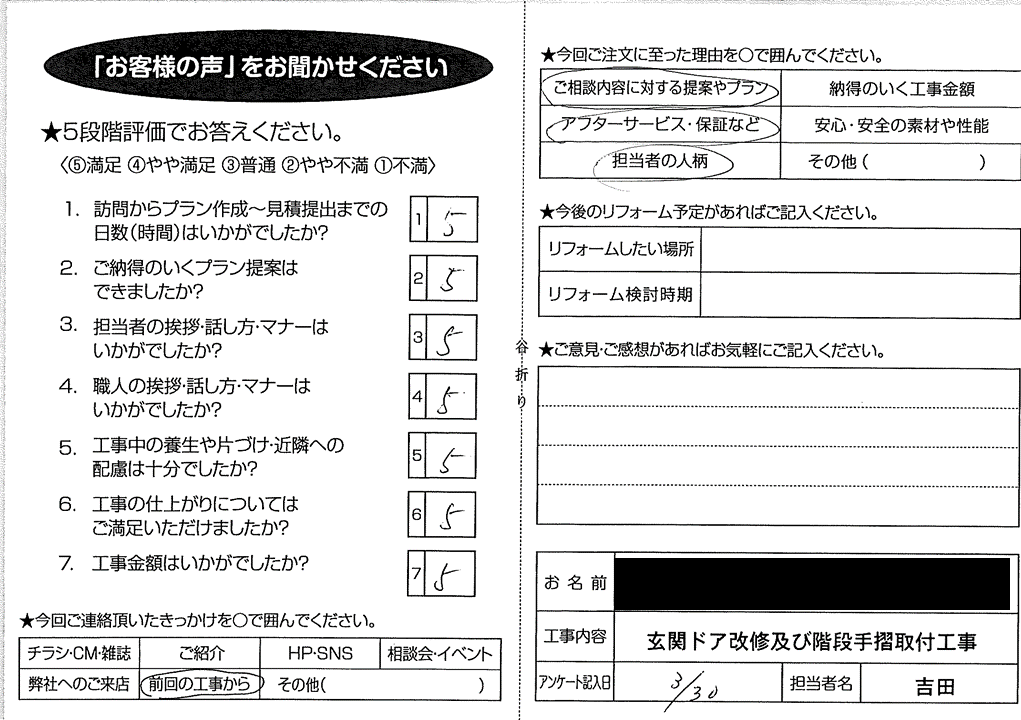 「お客様の声」をお聞かせください
★5段階評価でお答えください。
〈⑤満足 ④やや満足 ③普通 ②やや不満 ①不満〉
1. 訪問からプラン作成〜見積提出までの
日数(時間)はいかがでしたか?
1 5
2. ご納得のいくプラン提案は
できましたか?
2 5
3. 担当者の挨拶・話し方・マナーは
いかがでしたか?
3 5
4. 職人の挨拶・話し方・マナーは
いかがでしたか?
4 5
5. 工事中の養生や片づけ・近隣への
配慮は十分でしたか?
5 5
6. 工事の仕上がりについては
ご満足いただけましたか?
6 5
7. 工事金額はいかがでしたか?
7 5
★今回ご連絡頂いたきっかけを〇で囲んでください。
チラシ・CM・雑誌 ご紹介 HP・SNS 相談会・イベント
弊社へのご来店 前回の工事から その他( )
谷折り
★今回ご注文に至った理由を〇で囲んでください。
ご相談内容に対する提案やプラン 納得のいく工事金額
アフターサービス・保証など 安心・安全の素材や性能
担当者の人柄 その他( )
★今後のリフォーム予定があればご記入ください。
リフォームしたい場所
リフォーム検討時期
★ご意見・ご感想があればお気軽にご記入ください。
お名前
工事内容 玄関ドア改修及び階段手摺取付工事
アンケート記入日 3/30 担当者名 吉田